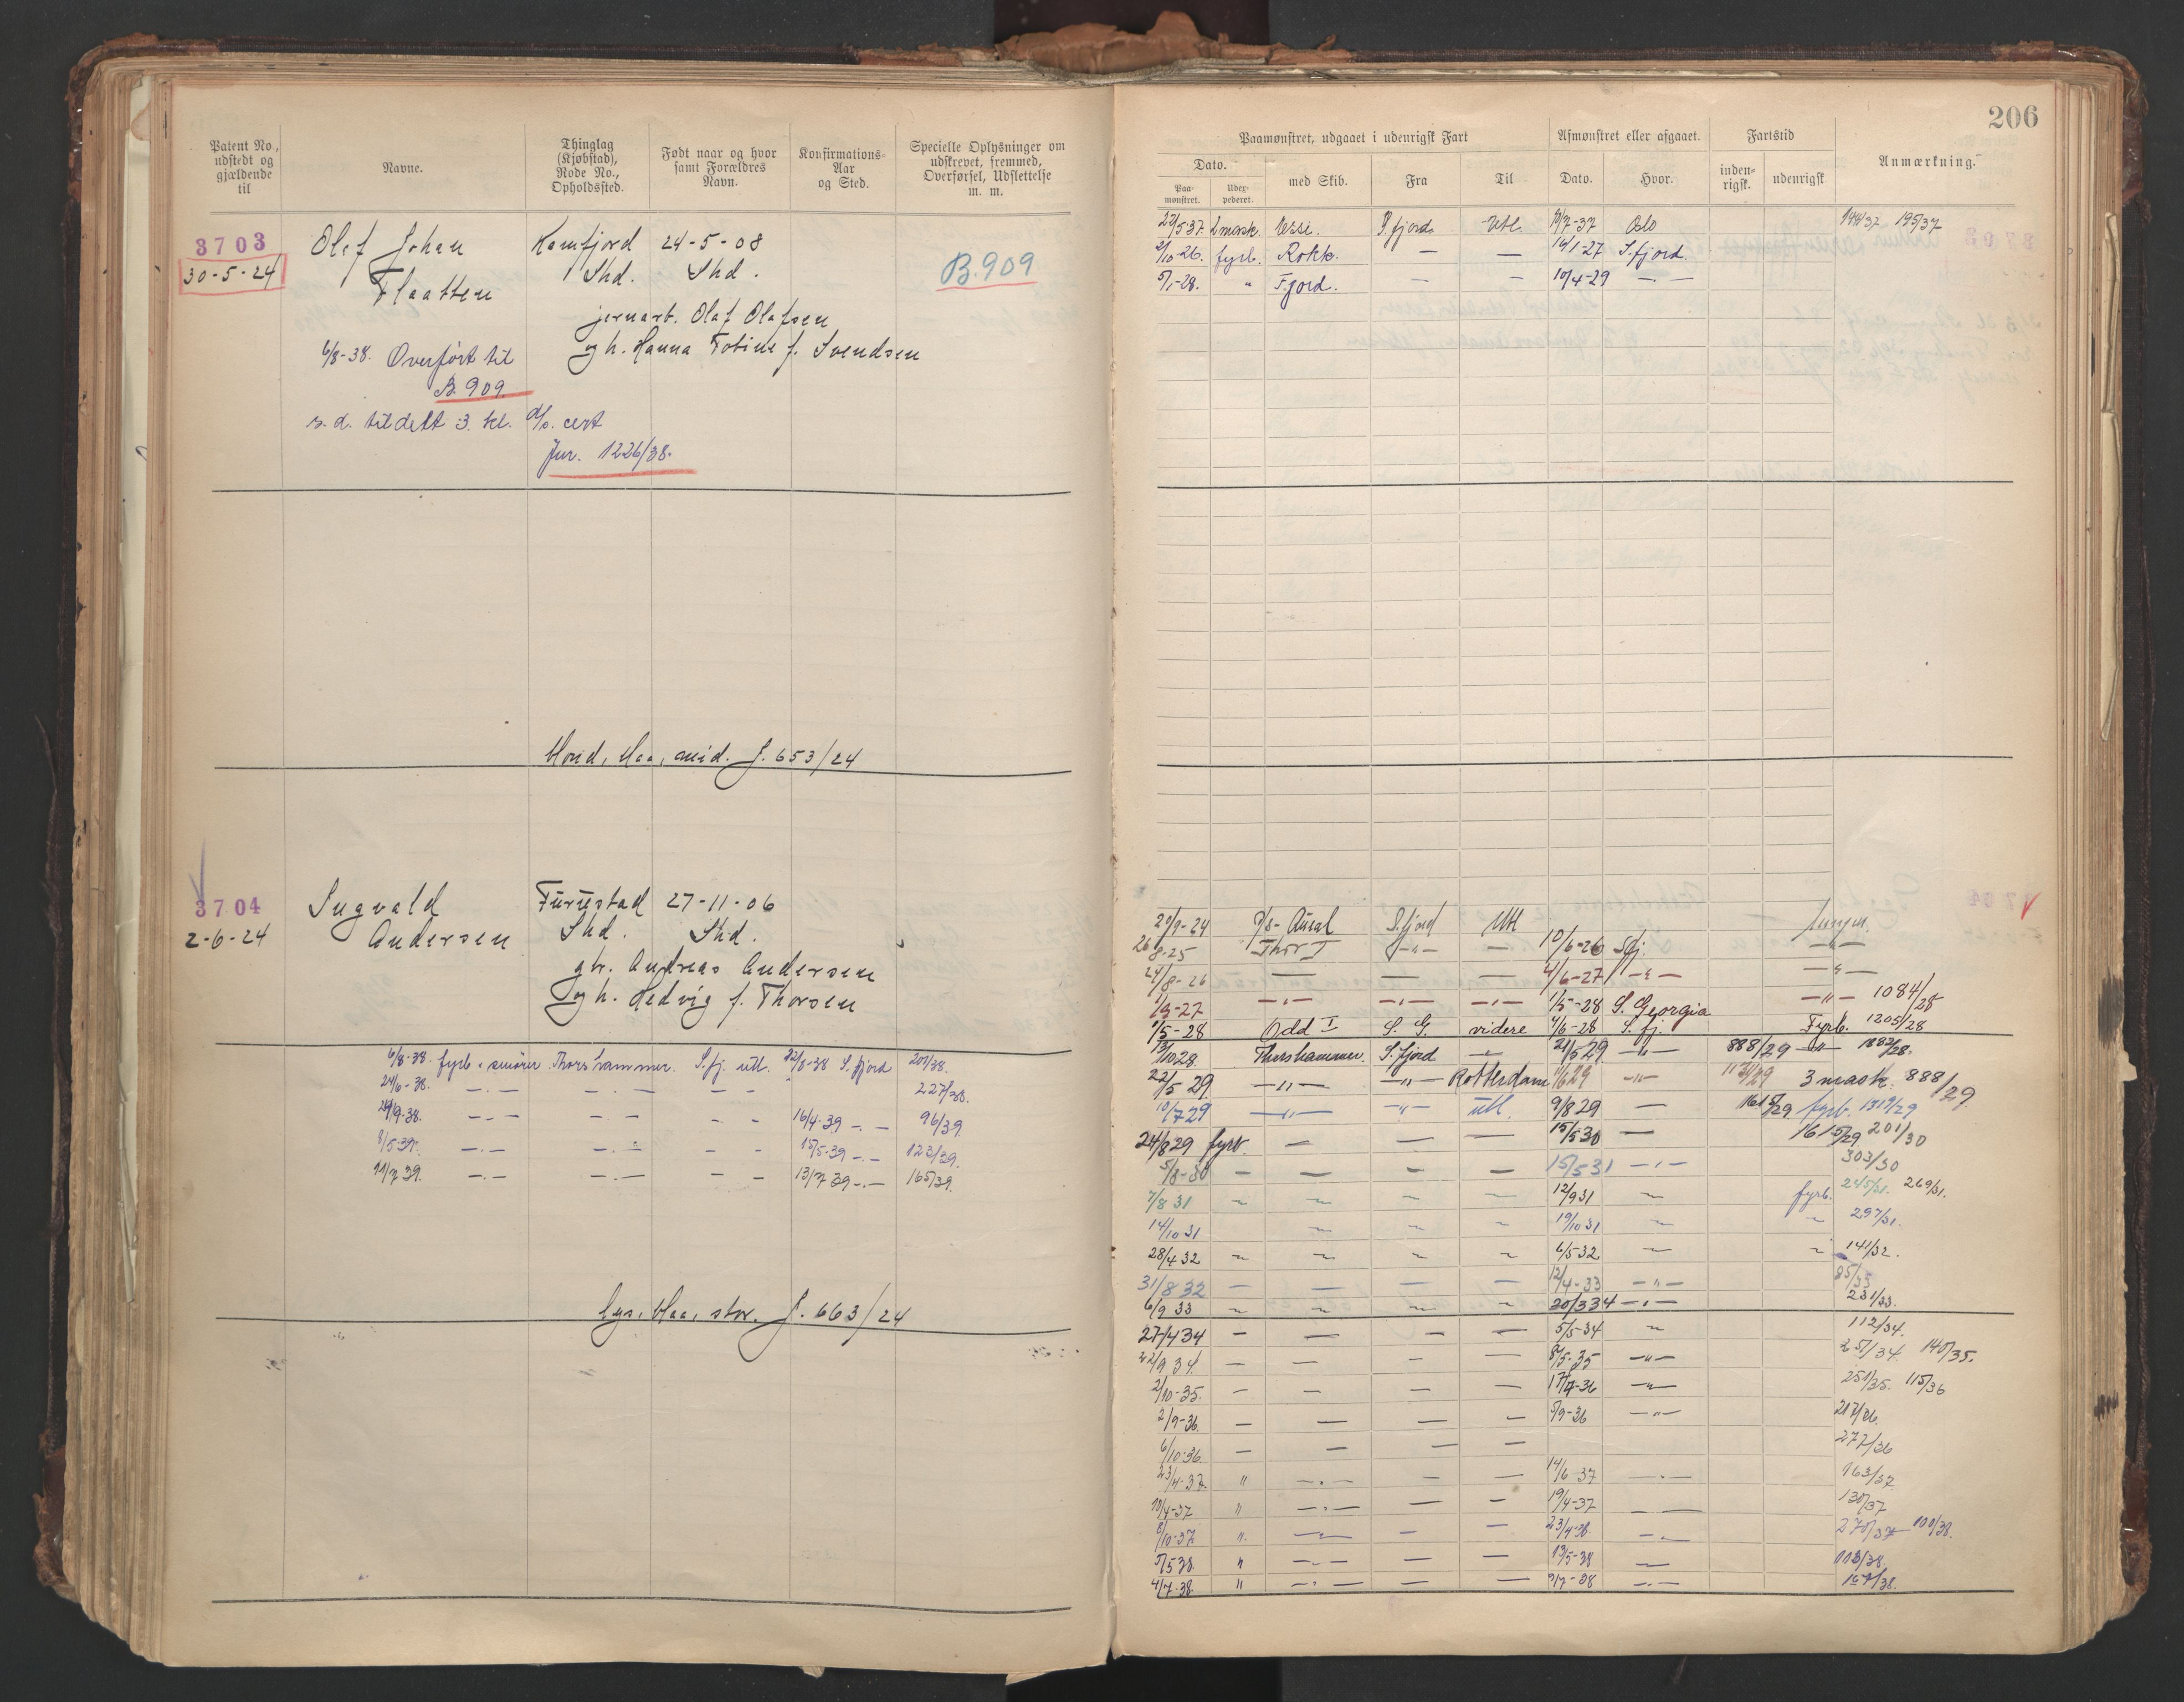 206
Patent No., udstedt og gjældende til
Navne.
Thinglag (Kjøbstad), Rode No., Opholdssted.
Født naar og hvor samt Forældres Navn.
Konfirmations-Aar og Sted.
Specielle Oplysninger om udskrevet, fremmed, Overførsel, Udslettelse m. m.
3703
30-5-24
Olaf Johan
Flaatten
Kamfjord 24-5-08
Shd. Shd.
B.909
jernarb. Olaf Olafsen
og h. Hanna Tobine f. Svendsen
6/8-38. Overført til
B.909
s.d. tildelt 3. kl. cert
Jur. 1226/38.
J. 653/24
3704
2-6-24
Ingvald
Andersen
Furustad 27-11-06
Shd. Shd.
Andreas Andersen
og h. Hedvig f. Thorsen
6/8-38. fyrb. smører Thorshammer. S.fj. utl. 22/8-38 S.fjord 201/38.
24/6-38. —.— —.— — - 227/38.
29/9-38. —.— — — - - 16/4-39 —.— 96/39.
8/5-39. —.— —.— - - 15/5-39 —.— 123/39.
11/7 39. —.— —.— — - 13/7 39 —.— 165/39.
J. 663/24
Paamønstret, udgaaet i udenrigsk Fart
Afmønstret eller afgaaet.
Fartstid
Anmærkning.
Dato.
Paa-mønstret.
Udex-pederet.
med Skib.
Fra
Til
Dato.
Hvor.
inden-rigsk.
udenrigsk
22/5 37. Vessi. S.fjord. Utl. 10/7-37 Oslo 144/37 195/37
2/10-26. fyrb. Rokk. — — 14/1-27 S.fjord.
5/1-28. " Fjord. — — 10/4-29 —.—
20/9-24 Aural S.fjord Utl
26/8-25 Thor I —"— — 10/6-26 Sfj. —"—
24/8-26 — — — 4/6-27 —"— —"—
1/9-27 —"— —"— —"— 1/5-28 S. Georgia —"— 1084/28
1/5-28 Odd I S. G. videre 4/6-28 S. fj. Fyrb. 1205/28
13/10 28. Thorshammer. S.fjord — 21/5 29 —"— 888/29 —"— 1882/28.
22/5 29. —"— —"— Rotterdam 11/6 29 —"— 3 mask. 888/29
10/7 29 —"— —"— utl. 9/8 29 — 1615/29 fyrb. 1319/29
24/8 29 fyrb. — — — 15/5 30 — 1615/29 201/30
5/8-30 — — — — 15/5 31 —"— 303/30
7/8 31 ~ ~ ~ ~ 12/9 31 ~ fyrb. 245/31. 269/31.
14/10 31 ~ ~ ~ 19/10 31 ~ ~ 297/31.
28/4 32 ~ ~ ~ ~ 6/5-32 ~ ~ 141/32.
31/8 32 — — — — 12/4-33 —"— 85/33
6/9 33 ~ ~ ~ ~ 20/3 34 —"— 231/33.
27/4 34 — — — — 5/5-34 ~ 112/34.
22/9 34. — — — — 8/5-35 —"— 251/34. 140/35.
2/10-35. — — — — 17/4-36 —"— 251/35. 115/36
2/9-36. — — — — 5/9-36 —"— 217/36.
6/10-36. — — — — 277/36
23/4-37. " —.— — — 14/6-37 —.— 163/37
10/4-37 " —"— — — 19/4-37 —.— 130/37
8/10-37. " —"— — — 23/4-38. —.— 270/37 100/38.
5/5 38. " —.— — — 13/5-38 — 113/38.
4/7-38. " —.— — — 9/7-38 —.— 167/38.